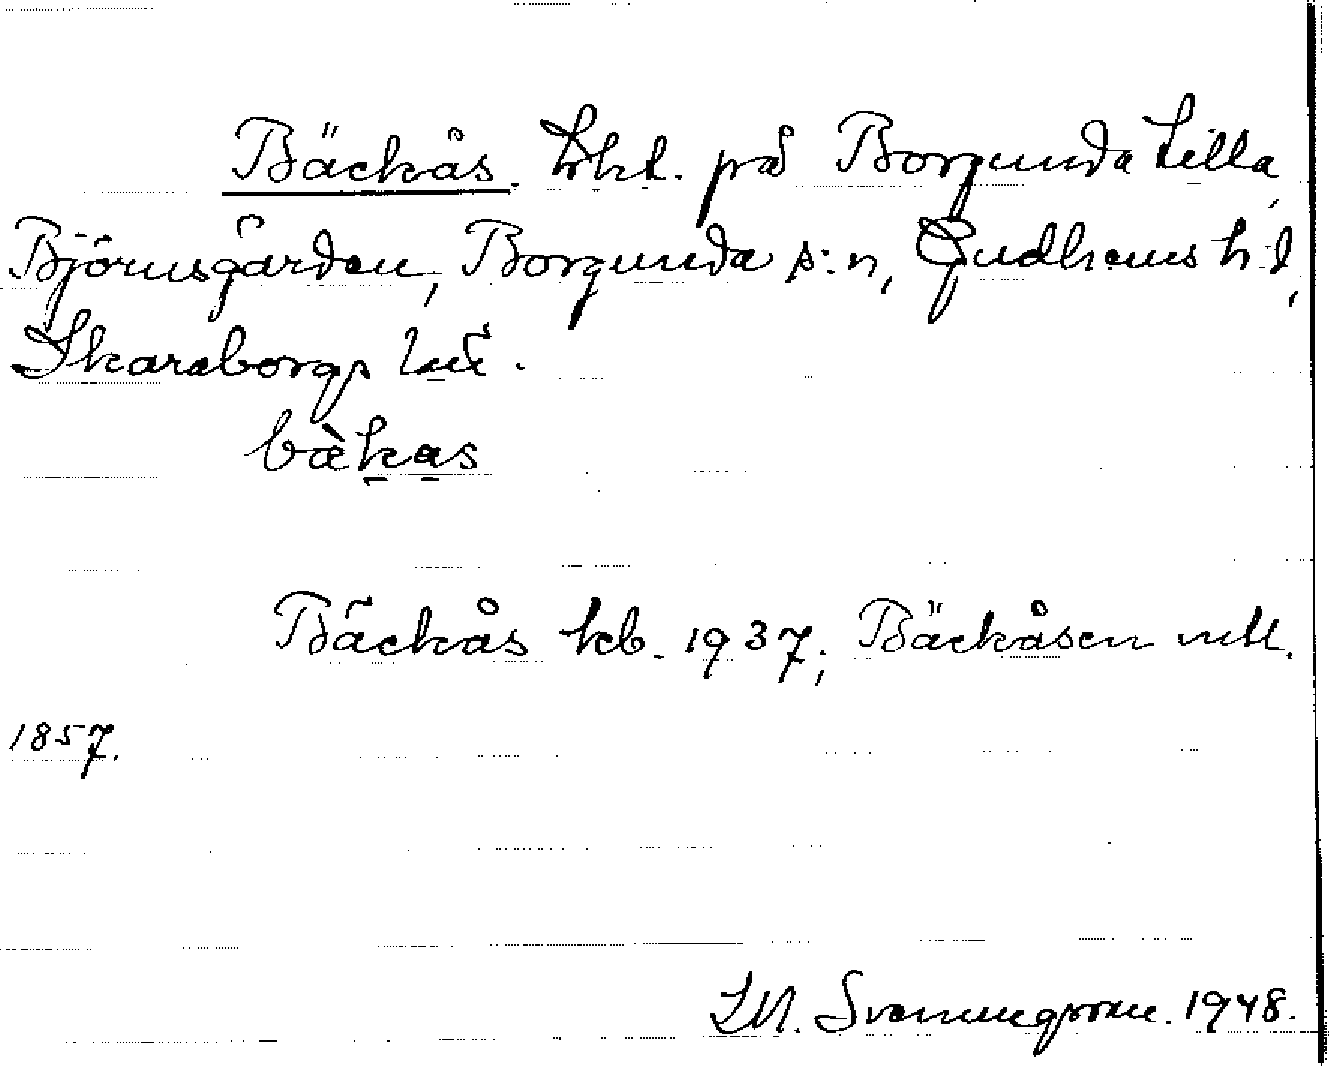 Bäckås. Lht. på Borgunda Lilla
Björnsgården, Borgunda s:n, Gudhems h:d,
Skaraborgs län.
bæ̀kas
Bäckås kb. 1937; Bäckåsen mtl.
1857.
S.M. Svenungsson. 1948.